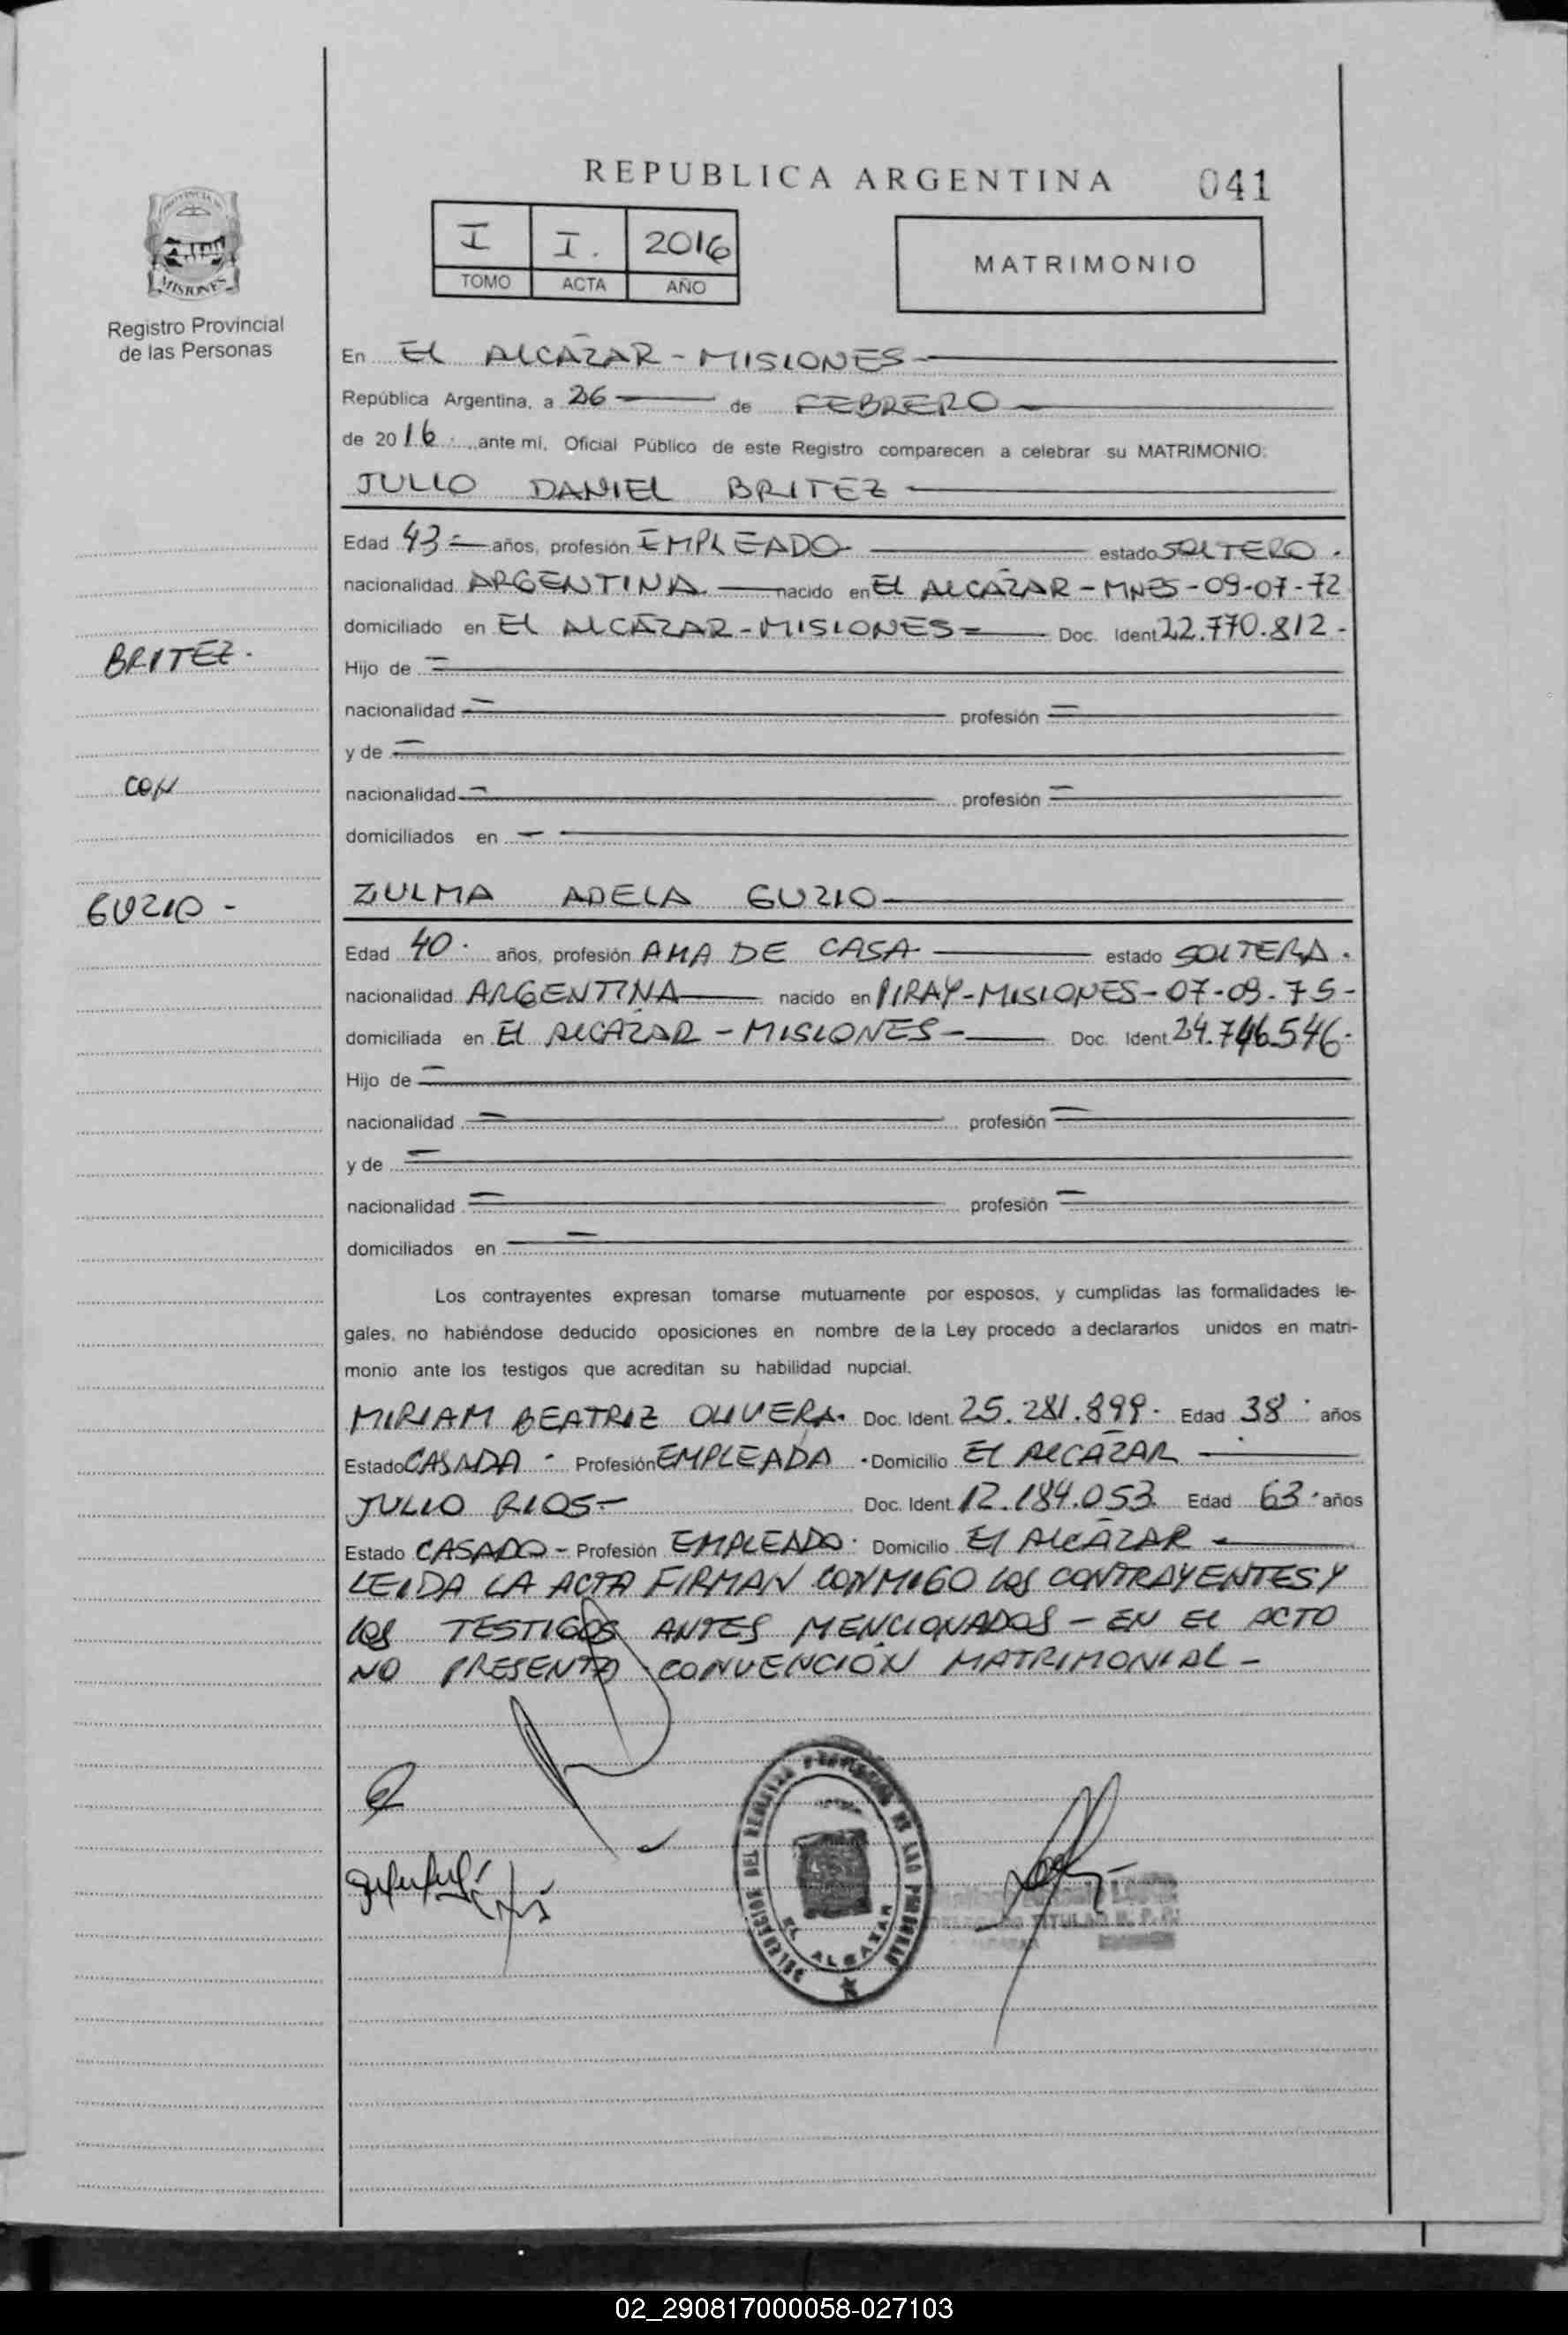 REPUBLICA ARGENTINA 041
I I. 2016
TOMO ACTA AÑO
MATRIMONIO
MISIONES
Registro Provincial
de las Personas
En EL ALCAZAR - MISIONES
República Argentina, a 26 de FEBRERO
de 2016. ante mí, Oficial Público de este Registro comparecen a celebrar su MATRIMONIO:
JULIO DANIEL BRITEZ
Edad 43 años, profesión EMPLEADO estado SOLTERO.
nacionalidad ARGENTINA nacido en EL ALCAZAR - MNES - 09-07-72
domiciliado en EL ALCAZAR - MISIONES Doc. Ident 22.770.812 -
BRITEZ.
Hijo de
nacionalidad profesión
y de
CON
nacionalidad profesión
domiciliados en
GUZIO -
ZULMA ADELA GUZIO
Edad 40. años, profesión AMA DE CASA estado SOLTERA.
nacionalidad ARGENTINA nacido en PIRAY - MISIONES - 07-09-75 -
domiciliada en EL ALCAZAR - MISIONES - Doc. Ident 24.746.546.
Hijo de
nacionalidad profesión
y de
nacionalidad profesión
domiciliados en
Los contrayentes expresan tomarse mutuamente por esposos, y cumplidas las formalidades le-
gales, no habiéndose deducido oposiciones en nombre de la Ley procedo a declararlos unidos en matri-
monio ante los testigos que acreditan su habilidad nupcial.
MIRIAM BEATRIZ OLIVERA. Doc. Ident. 25.281.899. Edad 38. años
Estado CASADA - Profesión EMPLEADA. Domicilio EL ALCAZAR
JULIO RIOS - Doc. Ident. 12.184.053 Edad 63. años
Estado CASADO - Profesión EMPLEADO. Domicilio El ALCAZAR
LEIDA LA ACTA FIRMAN CONMIGO LOS CONTRAYENTES Y
LOS TESTIGOS ANTES MENCIONADOS - EN EL ACTO
NO PRESENTA CONVENCIÓN MATRIMONIAL -
DELEGACION DEL REGISTRO PROVINCIAL DE LAS PERSONAS
EL ALCAZAR
TITULAR R. P. P.
02_290817000058-027103